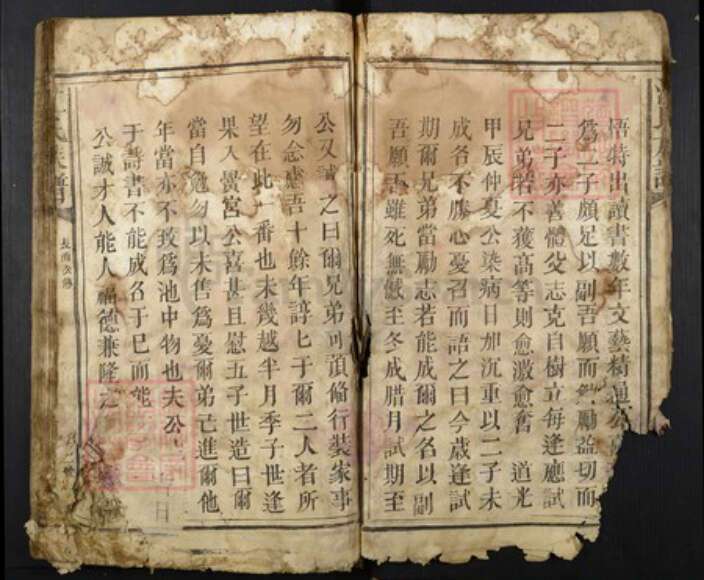 悟特出讀書數年文藝精通公
爲二子頗足以副吾願而勤勵益切而
二子亦善體父志克自樹立每逢應試
兄弟若不獲高等則愈激愈奮 道光
甲辰仲夏公染病日加沉重以二子未
成名不勝心憂召而語之曰今歲逢試
期爾兄弟當勵志若能成爾之名以副
吾願吾雖死無憾至冬成腊月試期至
公又誡之曰爾兄弟可預俻行裝家事
勿念慮吾十餘年諄匕于爾二人者所
望在此一番也未幾越半月季子世逢
果入黌宮公喜甚且慰五子世造曰爾
當自勉勿以未售爲憂爾弟已進爾他
年當亦不致爲池中物也夫公
于詩書不能成名于已而能
公誠才人能人福德兼隆之
氏族譜